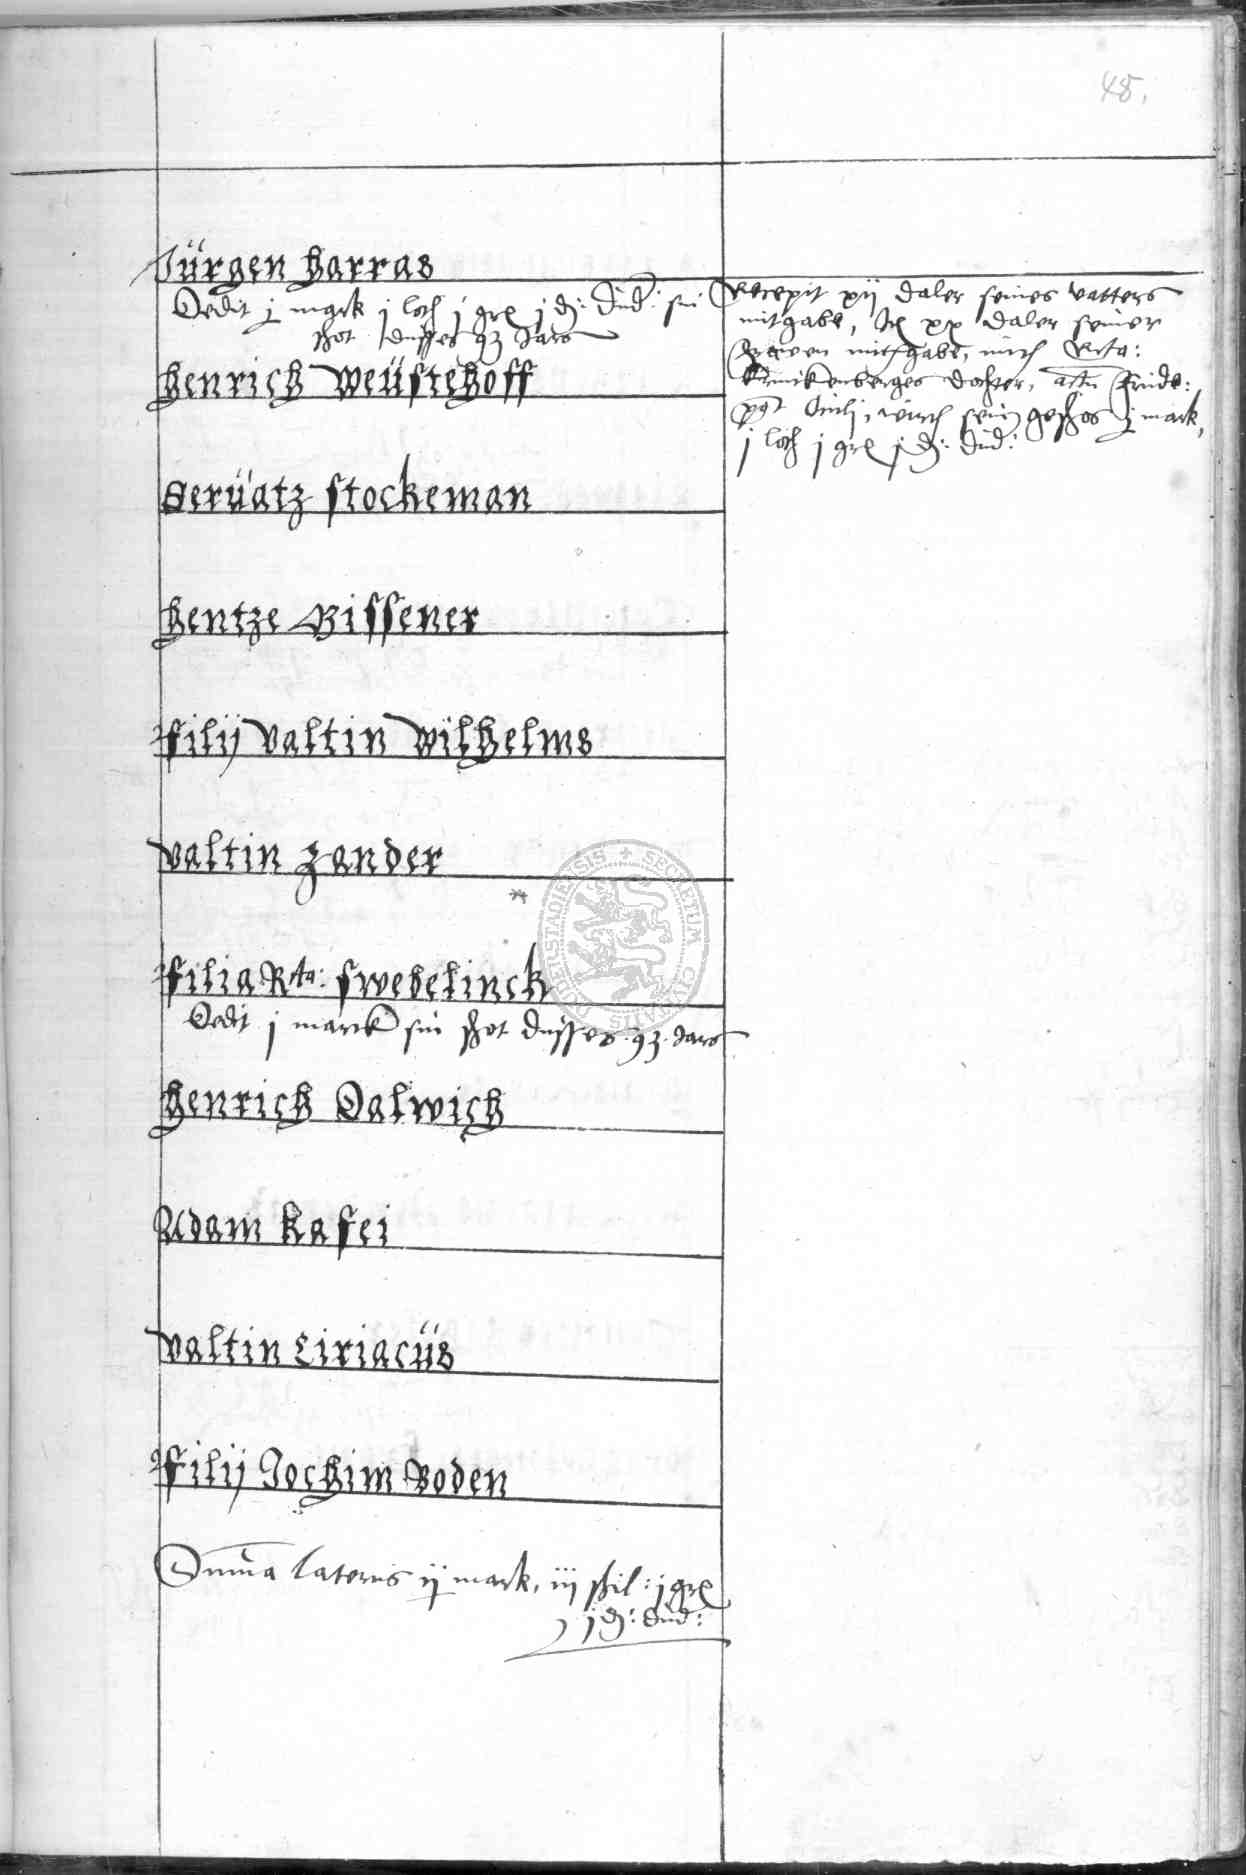 48.
Jürgen Harras
Dedit j mark j loth j gr j d: Dud: sin
schot dusses 93 Jars
Recepit xij daler seines vatters
mitgabe, xx daler seiner
mitgabe,
dochter,
sein geschos j mark,
j loth j gr j d: dud:
Henrich Weüstehoff
Serüatz Stockeman
Hentze Bissener
Filij Valtin Wilhelms
Valtin Zander
Filia Rta: Swebelinck
Dedit j marck sin schot dusses .93. Jars
Henrich Dalwich
Adam Kasei
Valtin Ciriacüs
Filij Jochim Boden
Summa lateris ij mark, iij schil: j gr
j d: dud:
DUDERSTADIENSIS + SECRETUM CIVITATIS